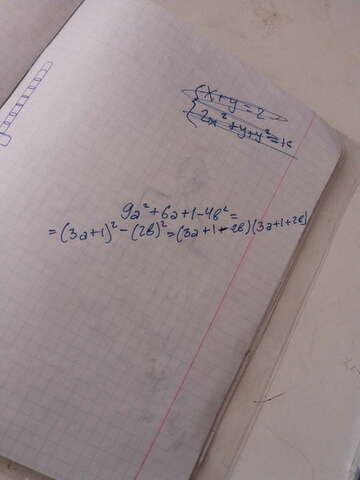 x+y=2
2x²+y+y²=16
9a²+6a+1-4b²=
=(3a+1)²-(2b)²=(3a+1-2b)(3a+1+2b)